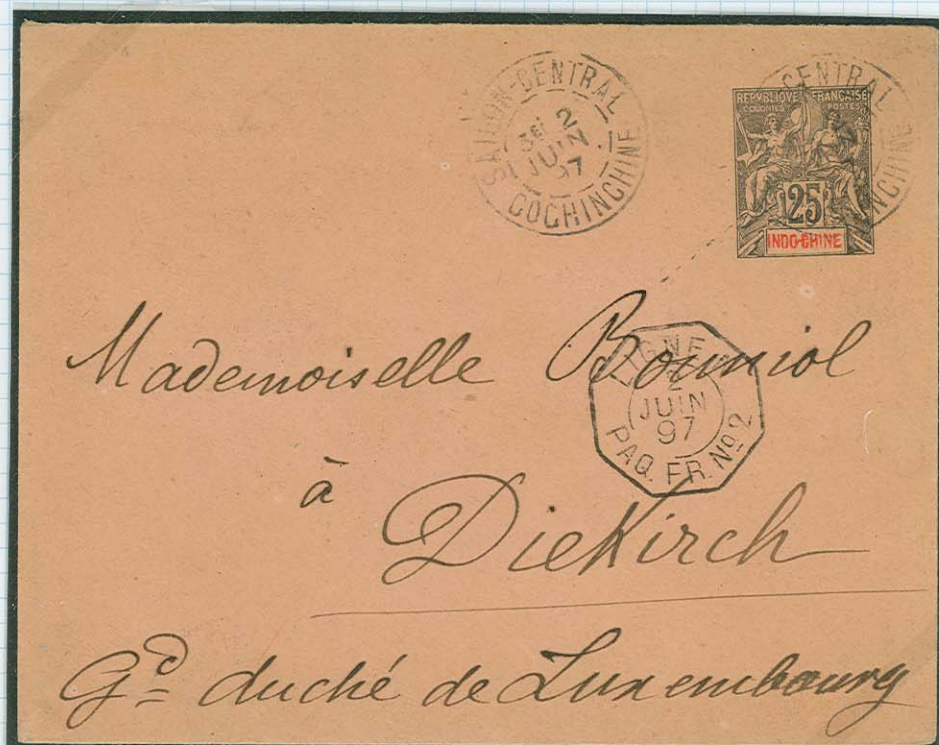 SAIGON-CENTRAL
3E/ 2
JUIN
97
COCHINCHINE
CENTRAL
REPVBLIQVE FRANÇAISE
COLONIES POSTES
25
INDO-CHINE
Mademoiselle Bouniol
LIGNE N
2
JUIN
97
PAQ. FR. No 2
à
Diekirch
Gd duché de Luxembourg